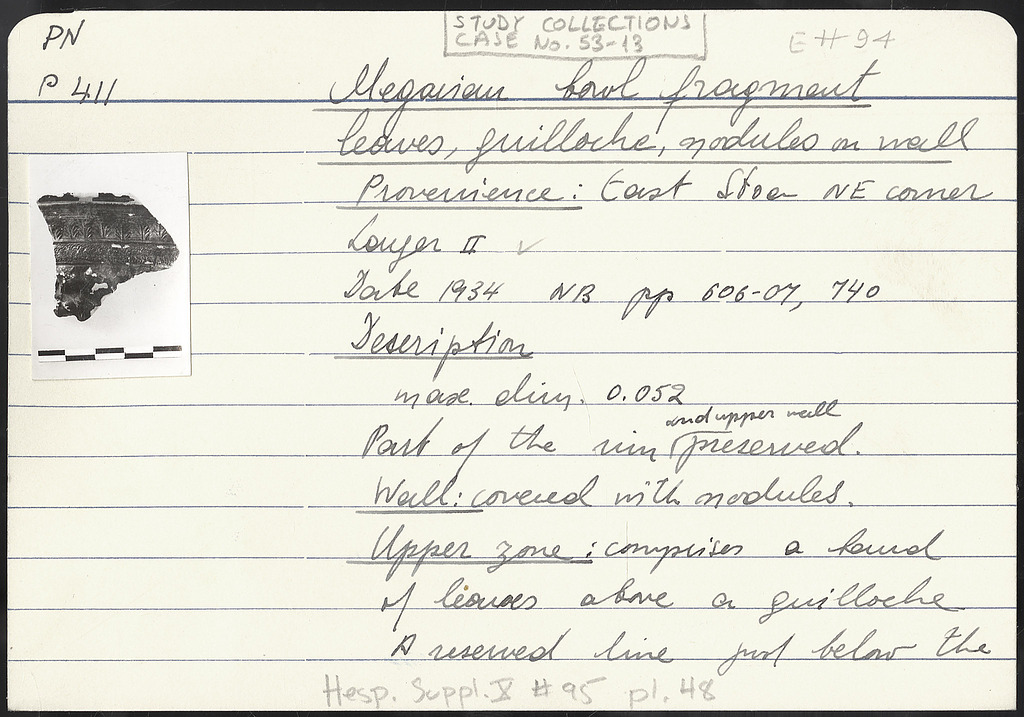 PN
STUDY COLLECTIONS
CASE No. 53-13
E # 94
P 411
Megarian bowl fragment
leaves, guilloche, nodules on wall
Provenience: East Stoa NE corner
Layer II ✓
Date 1934 NB pp 606-07, 740
Description
max. dim. 0.052
and upper wall
Part of the rim preserved.
Wall: covered with nodules.
Upper zone: comprises a band
of leaves above a guilloche
A reserved line just below the
Hesp. Suppl. X # 95 pl. 48